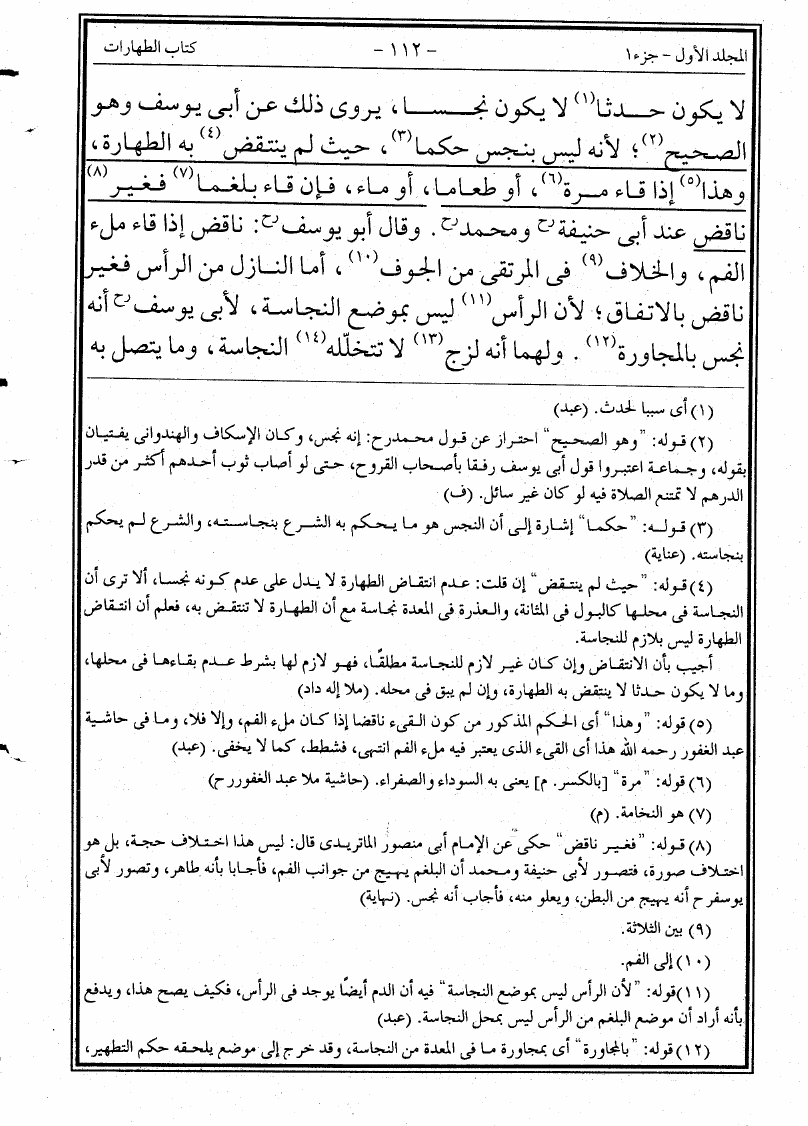 المجلد الأول - جزء١ - ١١٢ - كتاب الطهارات
لا يكون حـدثا(١) لا يكون نجـسـا، يروى ذلك عن أبى يوسف وهو
الصحيح(٢)؛ لأنه ليس بنجس حكما(٣)، حيث لم ينتقض(٤) به الطهارة،
وهذا(٥) إذا قاء مرة(٦)، أو طعاما، أو ماء، فإن قاء بلغما(٧) فغير(٨)
ناقض عند أبى حنيفة رح ومحمد رح. وقال أبو يوسف رح: ناقض إذا قاء ملء
الفم، والخلاف(٩) فى المرتقى من الجوف(١٠)، أما النازل من الرأس فغير
ناقض بالاتفاق؛ لأن الرأس(١١) ليس بموضع النجاسة، لأبى يوسف رح أنه
نجس بالمجاورة(١٢). ولهما أنه لزج(١٣) لا تتخلّله(١٤) النجاسة، وما يتصل به
(١) أى سببا لحدث. (عبد)
(٢) قوله: "وهو الصحيح" احتراز عن قول محمدرح: إنه نجس، وكان الإسكاف والهندوانى يفتيان
بقوله، وجماعة اعتبروا قول أبى يوسف رفقا بأصحاب القروح، حتى لو أصاب ثوب أحدهم أكثر من قدر
الدرهم لا تمتنع الصلاة فيه لو كان غير سائل. (ف)
(٣) قوله: "حكما" إشارة إلى أن النجس هو ما يحكم به الشرع بنجاسته، والشرع لم يحكم
بنجاسته. (عناية)
(٤) قوله: "حيث لم ينتقض" إن قلت: عدم انتقاض الطهارة لا يدل على عدم كونه نجسا، ألا ترى أن
النجاسة فى محلها كالبول فى المثانة، والعذرة فى المعدة نجاسة مع أن الطهارة لا تنتقض به، فعلم أن انتقاض
الطهارة ليس بلازم للنجاسة.
أجيب بأن الانتقاض وإن كان غير لازم للنجاسة مطلقًا، فهو لازم لها بشرط عدم بقاءها فى محلها،
وما لا يكون حدثا لا ينتقض به الطهارة، وإن لم يبق فى محله. (ملا إله داد)
(٥) قوله: "وهذا" أى الحكم المذكور من كون القىء ناقضا إذا كان ملء الفم، وإلا فلا، وما فى حاشية
عبد الغفور رحمه الله هذا أى القىء الذى يعتبر فيه ملء الفم انتهى، فشطط، كما لا يخفى. (عبد)
(٦) قوله: "مرة" [بالكسر. م] يعنى به السوداء والصفراء. (حاشية ملا عبد الغفوررح)
(٧) هو النخامة. (م)
(٨) قوله: "فغير ناقض" حكى عن الإمام أبى منصور الماتريدى قال: ليس هذا اختلاف حجة، بل هو
اختلاف صورة، فتصور لأبى حنيفة ومحمد أن البلغم يهيج من جوانب الفم، فأجابا بأنه طاهر، وتصور لأبى
يوسفرح أنه يهيج من البطن، ويعلو منه، فأجاب أنه نجس. (نهاية)
(٩) بين الثلاثة.
(١٠) إلى الفم.
(١١) قوله: "لأن الرأس ليس بموضع النجاسة" فيه أن الدم أيضًا يوجد فى الرأس، فكيف يصح هذا، ويدفع
بأنه أراد أن موضع البلغم من الرأس ليس بمحل النجاسة. (عبد)
(١٢) قوله: "بالمجاورة" أى بمجاورة ما فى المعدة من النجاسة، وقد خرج إلى موضع يلحقه حكم التطهير،